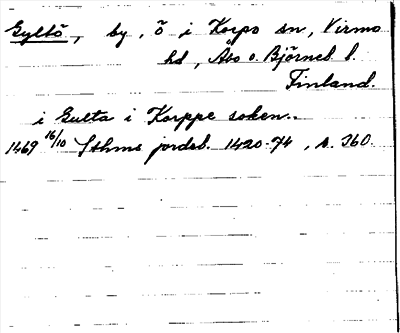 Gyltö, by, ö i Korpo sn, Virmo
hd, Åbo o. Björneb. l.
Finland.
i Gulta i Korppe soken..
1469 16/10 Sthms jordeb. 1420-74, s. 360.